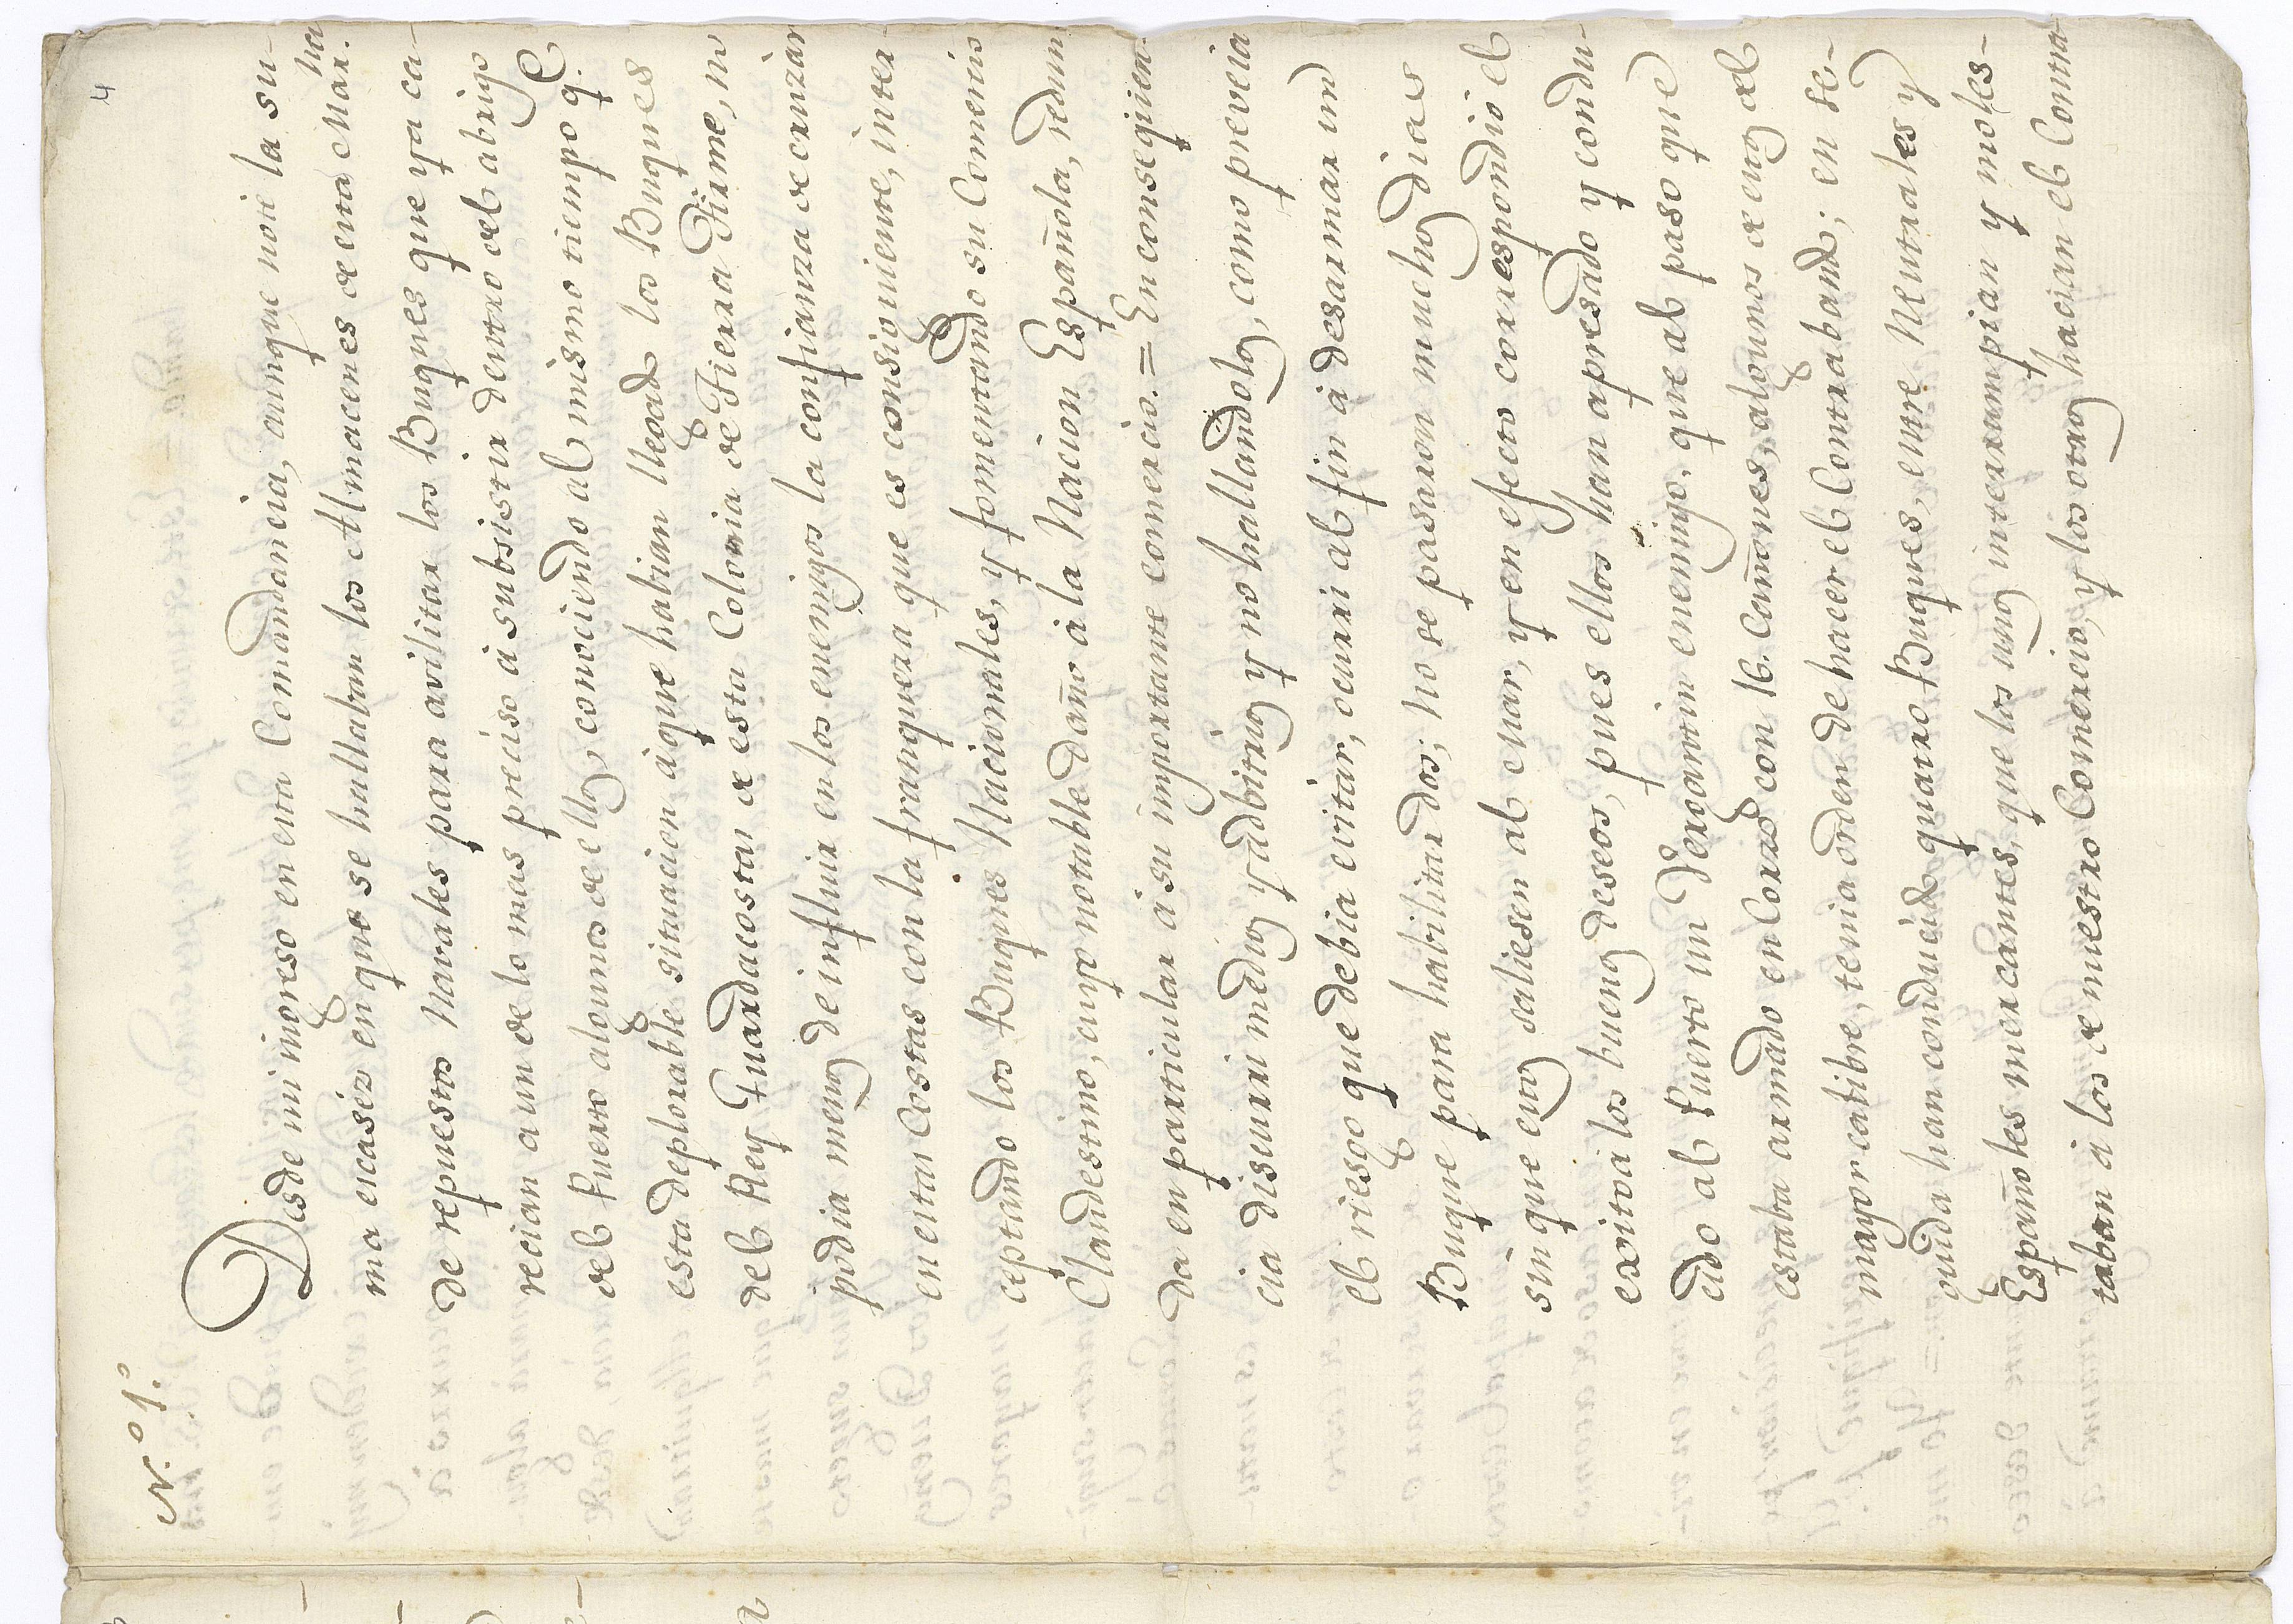 4
N.º 1.º
Desde mi ingreso en esta Comandancia, aunque noté la su-
ma escaséz en que se hallaban los Almacenes de esta Mar.na
de repuestos Navales para avilitar los Buques que ya ca-
recian aun de lo mas preciso á subsistir dentro del abrigo
del Puerto algunos de ellos, conociendo al mismo tiempo q.e
esta deplorable situacion á que habian llegado los Buques
del Rey Guardacostas de esta Colonia de Tierra Firme, no
podia menos de influir en los enemigos la confianza de cruzar
en estas Costas con la franqueza que es consiguiente, inter-
ceptando los Buques Nacionales, y fomentando su Comercio
Clandestino, cuyo notable daño á la Nacion Española, redun
da en particular á su importante comercio. = En consequen-
cia discurri medios y adbitrios y no hallandolos, como preveia
el riesgo que debia evitar, ocurri al fin á desarmar un
Buque para habilitar dos; no se pasaron muchos dias
sin que estos saliesen al mar, y en efecto correspondió el
exito á los buenos deseos, pues ellos han apresado y condu-
cido al Puerto un Bergantin enemigo, que al paso que
estaba armado en Corso con 16. Cañones, algunos de ellos del
mayor calibre, tenia orden de hacer el Contrabando; en se-
guida han conducido quatro Buques, entre Neutrales y
Españoles mercantes, que los unos interrumpian y moles-
taban á los de nuestro Comercio, y los otros hacian el Contra-